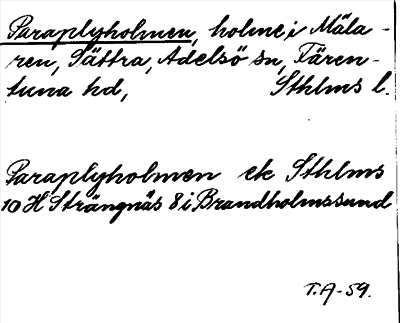 Paraplyholmen, holme i Mäla-
ren, Sättra, Adelsö sn, Fären-
tuna hd, Sthlms l.
Paraplyholmen ek Sthlms
10 H Strängnäs 8 i Brandholmssund
T.A-59.